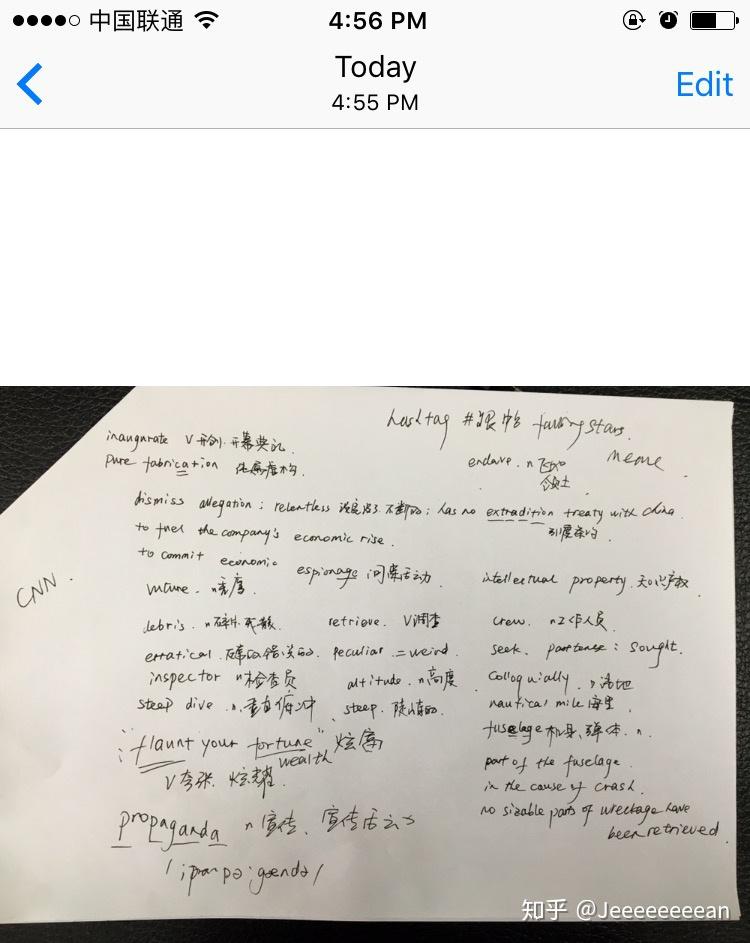 中国联通 4:56 PM
Today
4:55 PM
Edit
hashtag #跟 falling stars.
inaugurate V 开创. 开幕典礼
pure fabrication 纯属虚构.
enclave. n 飞地 meme
领土
dismiss allegation : relentless 不断的 : has no extradition treaty with china.
引渡条约.
to fuel the company's economic rise.
to commit economic espionage 间谍活动
CNN.
intellectual property. 知识产权
debris. n 碎片. retrieve. V 调查 crew. n 工作人员
erratical. 错误的. peculiar = weird. seek. past tense : sought.
inspector n 检查员 altitude. n 高度 colloquially.
steep dive .n. 垂直俯冲. steep. 陡峭的. nautical mile 海里.
"flaunt your fortune" 炫富
wealth
V 夸张. 炫耀.
fuselage 机身. 弹体. n.
part of the fuselage.
in the cause of crash.
no sizable parts of wreckage have
been retrieved.
propaganda n 宣传、宣传活动
知乎 @Jeeeeeeeeean